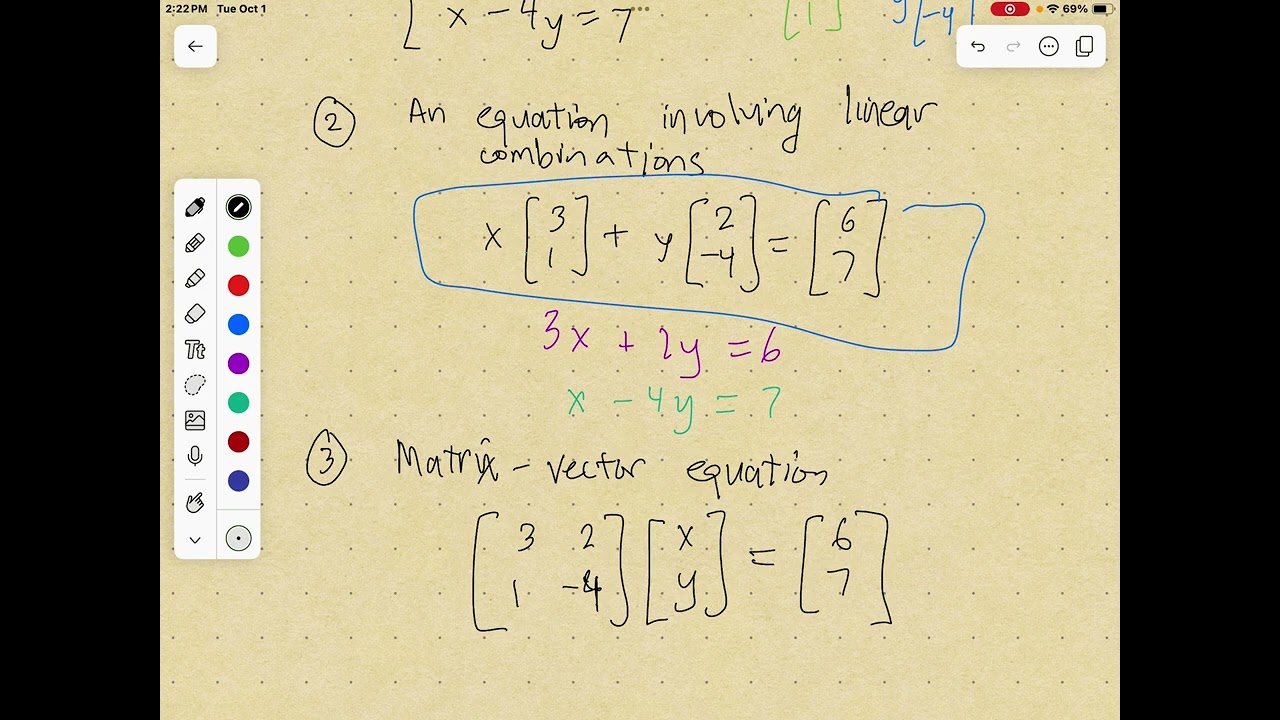 2:22 PM Tue Oct 1
69%
x - 4y = 7 [1] y[-4]
② An equation involving linear
combinations
x [3 1] + y [2 -4] = [6 7]
3x + 2y = 6
x - 4y = 7
③ Matrix - vector equation
[3 2 1 -4] [x y] = [6 7]
Tt